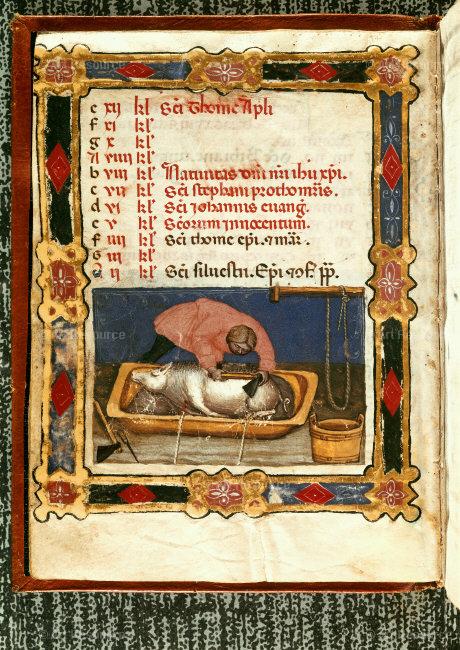 e xij kl' Sci Thome Apli
f xi kl'
g x kl'
A viiii kl'
b viii kl' Natiuitas dni nri ihu xpi.
c vii kl' Sci stephani prothom̄is.
d vi kl' Sci Johannis euang.
e v kl' Scorum innocentum.
f iiii kl' Sci thome epi. 7 mar.
g iii kl'
A ii kl' Sci siluestri. Epi 7 9f. pp.